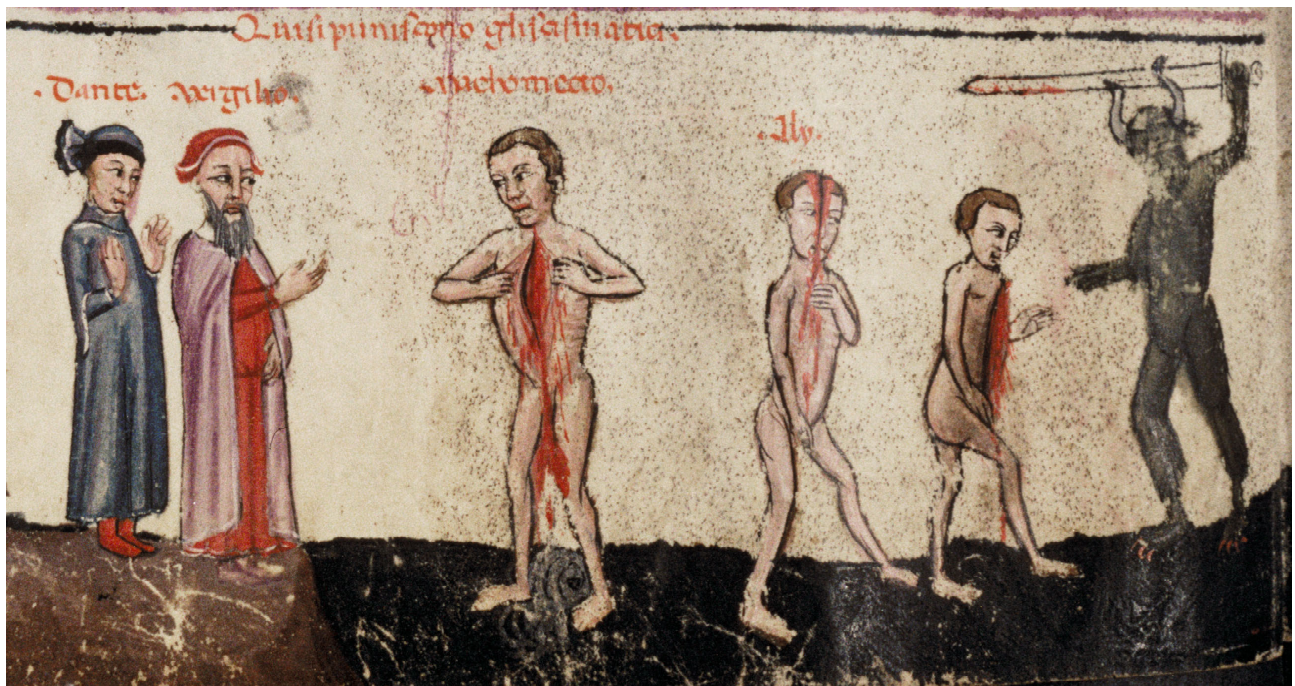 Quisi puniscono gliscismatici.
.Dante. Virgilio. Machomecto.
.Aly.